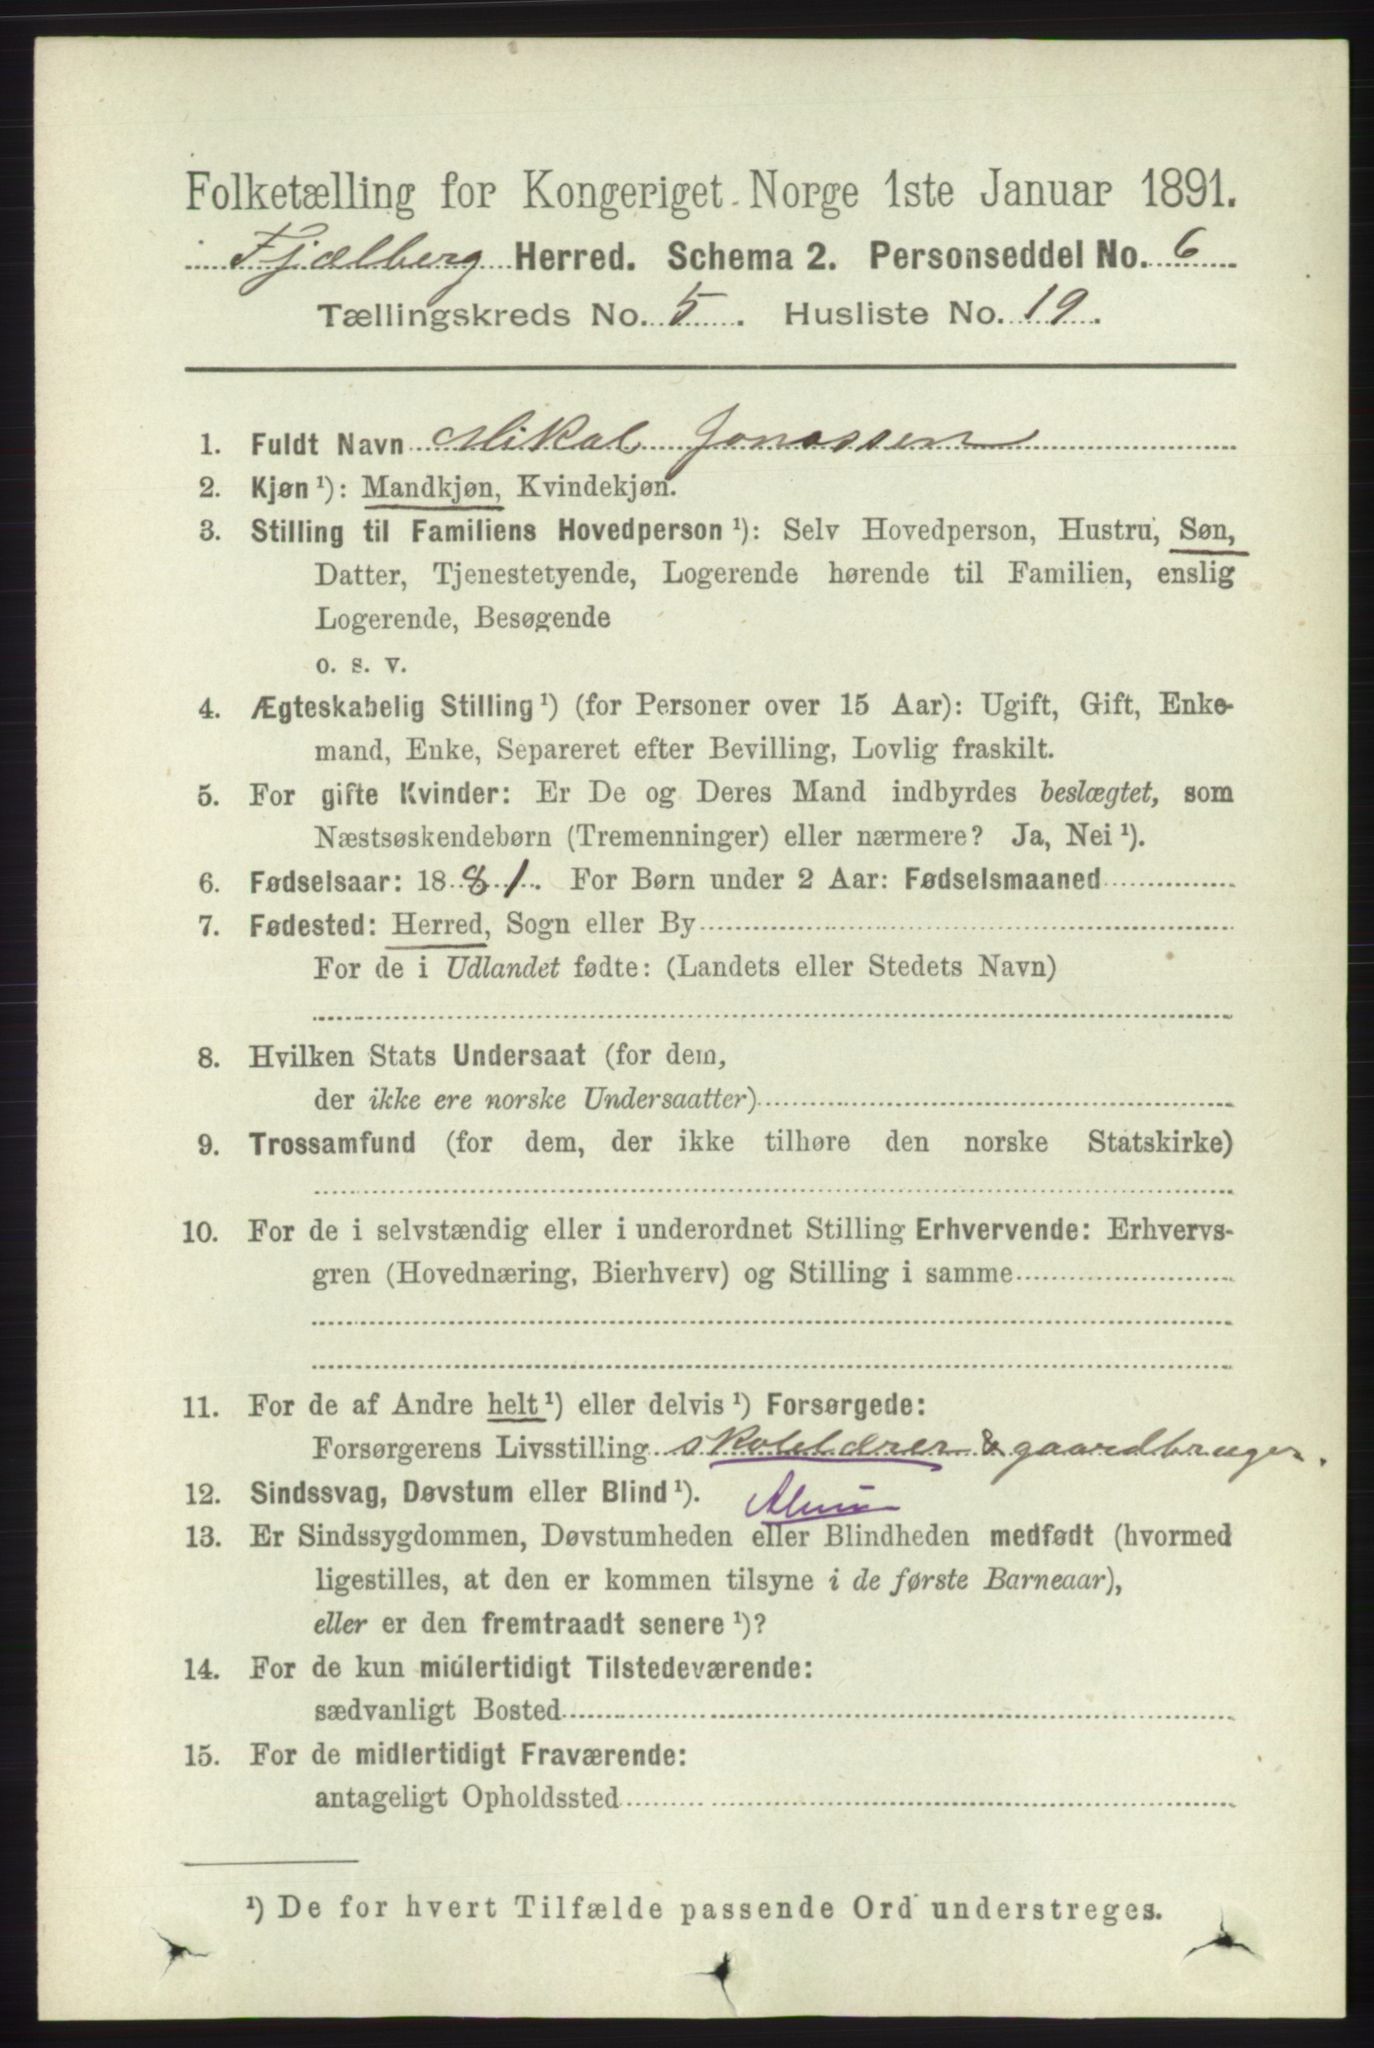 Folketælling for Kongeriget Norge 1ste Januar 1891.
Fjælberg Herred. Schema 2. Personseddel No. 6
Tællingskreds No. 5. Husliste No. 19.
1. Fuldt Navn Mikal Jonassen
2. Kjøn ¹): Mandkjøn, Kvindekjøn.
3. Stilling til Familiens Hovedperson ¹): Selv Hovedperson, Hustru, Søn,
Datter, Tjenestetyende, Logerende hørende til Familien, enslig
Logerende, Besøgende
o. s. v.
4. Ægteskabelig Stilling ¹) (for Personer over 15 Aar): Ugift, Gift, Enke-
mand, Enke, Separeret efter Bevilling, Lovlig fraskilt.
5. For gifte Kvinder: Er De og Deres Mand indbyrdes beslægtet, som
Næstsøskendebørn (Tremenninger) eller nærmere? Ja, Nei ¹).
6. Fødselsaar: 1881. For Børn under 2 Aar: Fødselsmaaned
7. Fødested: Herred, Sogn eller By
For de i Udlandet fødte: (Landets eller Stedets Navn)
8. Hvilken Stats Undersaat (for dem,
der ikke ere norske Undersaatter)
9. Trossamfund (for dem, der ikke tilhøre den norske Statskirke)
10. For de i selvstændig eller i underordnet Stilling Erhvervende: Erhvervs-
gren (Hovednæring, Bierhverv) og Stilling i samme
11. For de af Andre helt ¹) eller delvis ¹) Forsørgede:
Forsørgerens Livsstilling skolelærer & gaardbruger.
12. Sindssvag, Døvstum eller Blind ¹).
13. Er Sindssygdommen, Døvstumheden eller Blindheden medfødt (hvormed
ligestilles, at den er kommen tilsyne i de første Barneaar),
eller er den fremtraadt senere ¹)?
14. For de kun midlertidigt Tilstedeværende:
sædvanligt Bosted
15. For de midlertidigt Fraværende:
antageligt Opholdssted
¹) De for hvert Tilfælde passende Ord understreges.